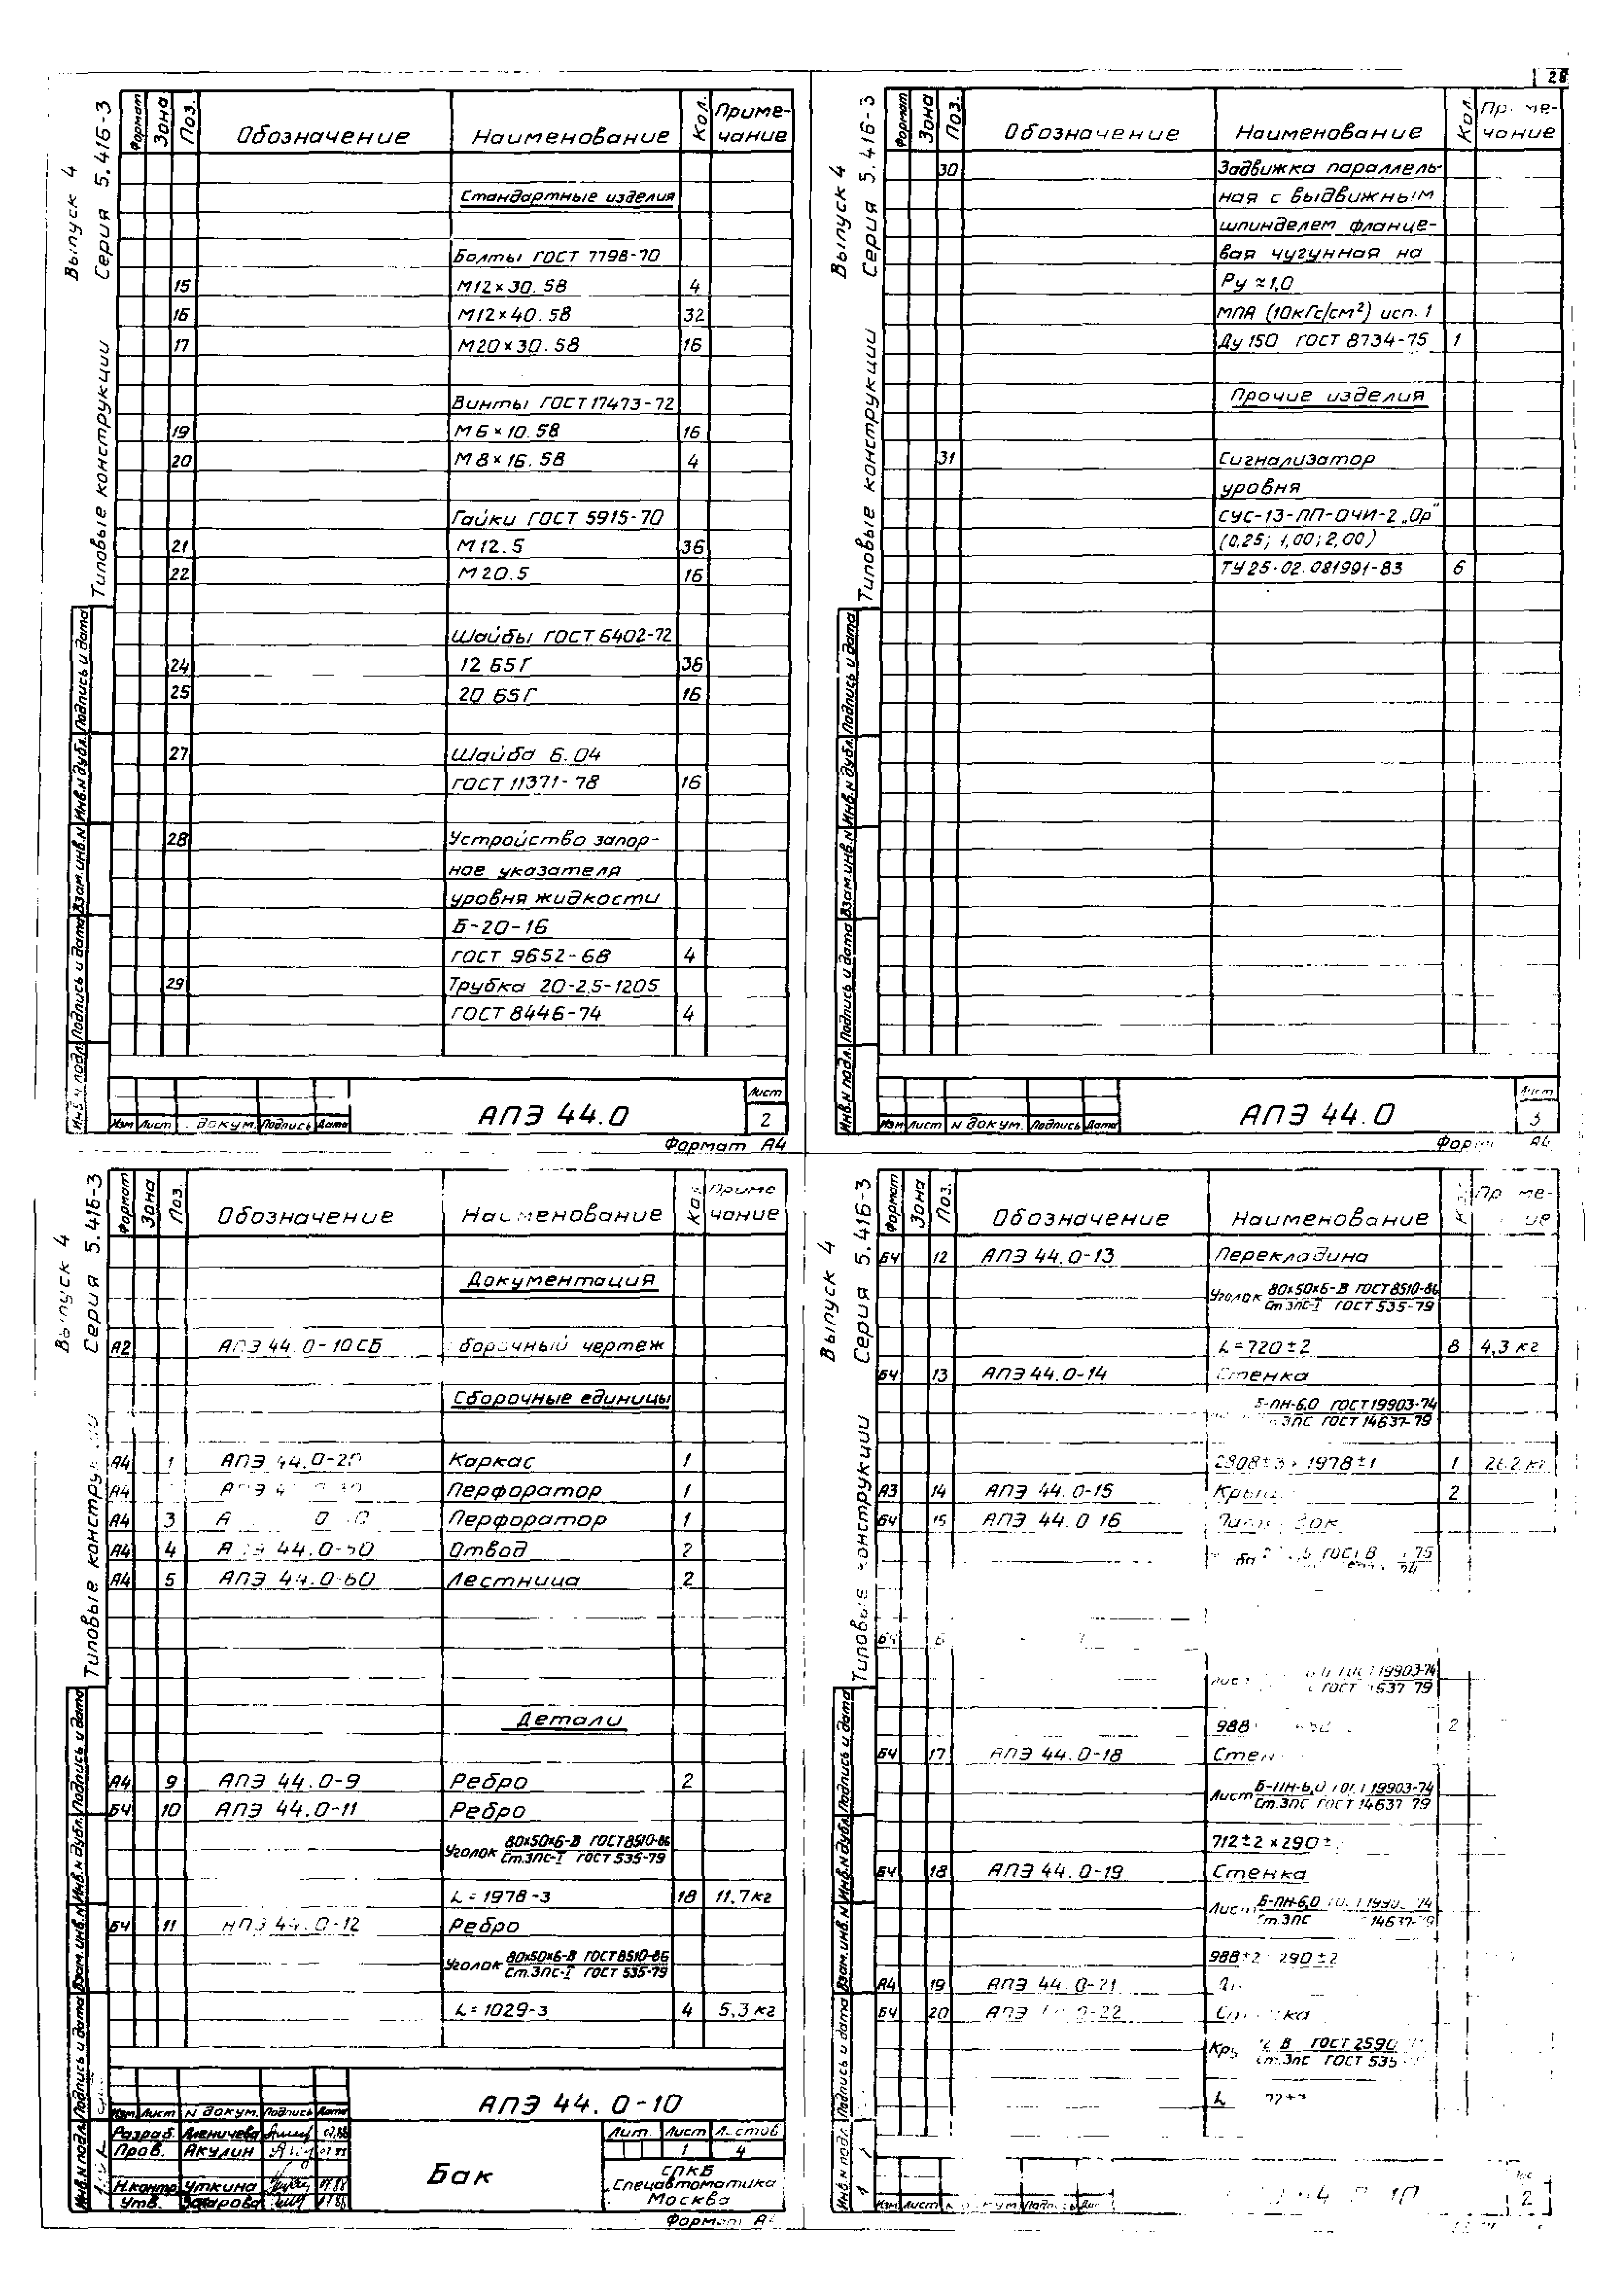 28
Выпуск 4
Серия 5.416-3
Типовые конструкции
Формат Зона Поз. Обозначение Наименование Кол. Примечание
Стандартные изделия
Болты ГОСТ 7798-70
15 М12×30.58 4
16 М12×40.58 32
17 М20×30.58 16
Винты ГОСТ 17473-72
19 М6×10.58 16
20 М8×16.58 4
Гайки ГОСТ 5915-70
21 М12.5 36
22 М20.5 16
Шайбы ГОСТ 6402-72
24 12 65Г 36
25 20 65Г 16
27 Шайба 6.04
ГОСТ 11371-78 16
28 Устройство запор-
ное указателя
уровня жидкости
Б-20-16
ГОСТ 9652-68 4
29 Трубка 20-2,5-1205
ГОСТ 8446-74 4
Инв.N подл. Подпись и дата Взам.инв.N Инв.N дубл. Подпись и дата
Изм Лист докум. Подпись Дата
АПЭ 44.0
Лист
2
Формат А4
Выпуск 4
Серия 5.416-3
Типовые конструкции
Формат Зона Поз. Обозначение Наименование Кол. Приме-
чание
30 Задвижка параллель-
ная с выдвижным
шпинделем фланце-
вая чугунная на
Ру ≈1,0
МПА (10кГс/см²) исп. 1
Ду 150 ГОСТ 8734-75 1
Прочие изделия
31 Сигнализатор
уровня
СУС-13-ПП-ОЧИ-2 „Ор"
(0,25; 1,00; 2,00)
ТУ25-02.081991-83 6
Инв.N подл. Подпись и дата Взам.инв.N Инв.N дубл. Подпись и дата
Изм Лист N докум. Подпись Дата
АПЭ 44.0
Лист
3
А4
Выпуск 4
Серия 5.416-3
Типовые
Формат Зона Поз. Обозначение Наименование Приме
чание
Документация
А2 АПЭ 44.0-10СБ чертеж
Сборочные единицы
А4 1 АПЭ 44.0-20 Каркас 1
А4 Перфоратор 1
А4 3 Перфоратор 1
А4 4 44.0-50 Отвод 2
А4 5 АПЭ 44.0-60 Лестница 2
Детали
А4 9 АПЭ 44.0-9 Ребро 2
БЧ 10 АПЭ 44.0-11 Ребро
Уголок 80×50×6-В ГОСТ 8510-86
Ст.3ПС-I ГОСТ 535-79
L=1978-3 18 11,7кг
БЧ 11 АПЭ 44.0-12 Ребро
Уголок 80×50×6-В ГОСТ 8510-86
Ст.3ПС-I ГОСТ 535-79
L=1029-3 4 5,3кг
Инв.N подл. Подпись и дата Взам.инв.N Инв.N дубл. Подпись и дата
Изм Лист N докум. Подпись Дата
Разраб.
Пров. Акулин
Н.контр. Уткина
Утв. Захарова
АПЭ 44.0-10
Бак
Лит. Лист Листов
1 4
СПКБ
Спецавтоматика
Москва
Формат А4
Выпуск 4
Серия 5.416-3
Типовые конструкции
Формат Зона Поз. Обозначение Наименование
БЧ 12 АПЭ 44.0-13 Перекладина
Уголок 80×50×6-В ГОСТ 8510-86
Ст.3ПС-I ГОСТ 535-79
L=720±2 8 4,3 кг
БЧ 13 АПЭ 44.0-14 Стенка
Б-ПН-6,0 ГОСТ 19903-74
3ПС ГОСТ 14637-79
1978±1 1
А3 14 АПЭ 44.0-15 2
БЧ 15 АПЭ 44.0 16
БЧ
19903-74
ГОСТ 79
988 2
БЧ 17 АПЭ 44.0-18
Лист Б-ПН-6,0 19903-74
Ст.3ПС ГОСТ 14637 79
712±2×290±
БЧ 18 АПЭ 44.0-19 Стенка
Б-ПН-6,0
14637-79
988±2 290±2
А4 19 АПЭ 44.0-21
БЧ 20 АПЭ
ГОСТ 2590
ГОСТ 535
L
Подпись и дата Взам.инв.N Инв.N дубл. Подпись и дата
Изм Лист
2